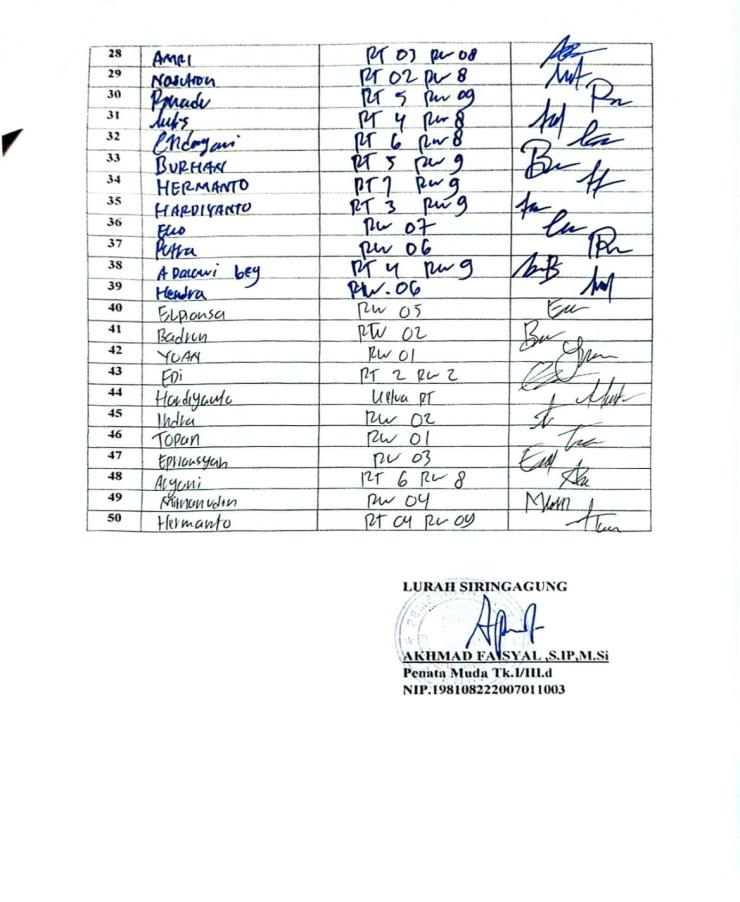 28 AMRI RT 03 RW 08
29 Nasution RT 02 RW 8
30 RT 5 RW 09
31 RT 4 RW 8
32 RT 6 RW 8
33 BURHAN RT 5 RW 9
34 HERMANTO RT 7 RW 9
35 HARDIYANTO RT 3 RW 9
36 Eko RW 07
37 Putra RW 06
38 RT 4 RW 9
39 Hendra RW. 06
40 RW 05
41 Badrun RW 02
42 YUAN RW 01
43 EDI RT 2 RW 2
44 Hardiyanto Ketua RT
45 Indra RW 02
46 TOPAN RW 01
47 RW 03
48 RT 6 RW 8
49 RW 04
50 Hermanto RT 04 RW 09
LURAH SIRINGAGUNG
AKHMAD FAISYAL ,S.IP,M.Si
Penata Muda Tk.I/III.d
NIP.198108222007011003